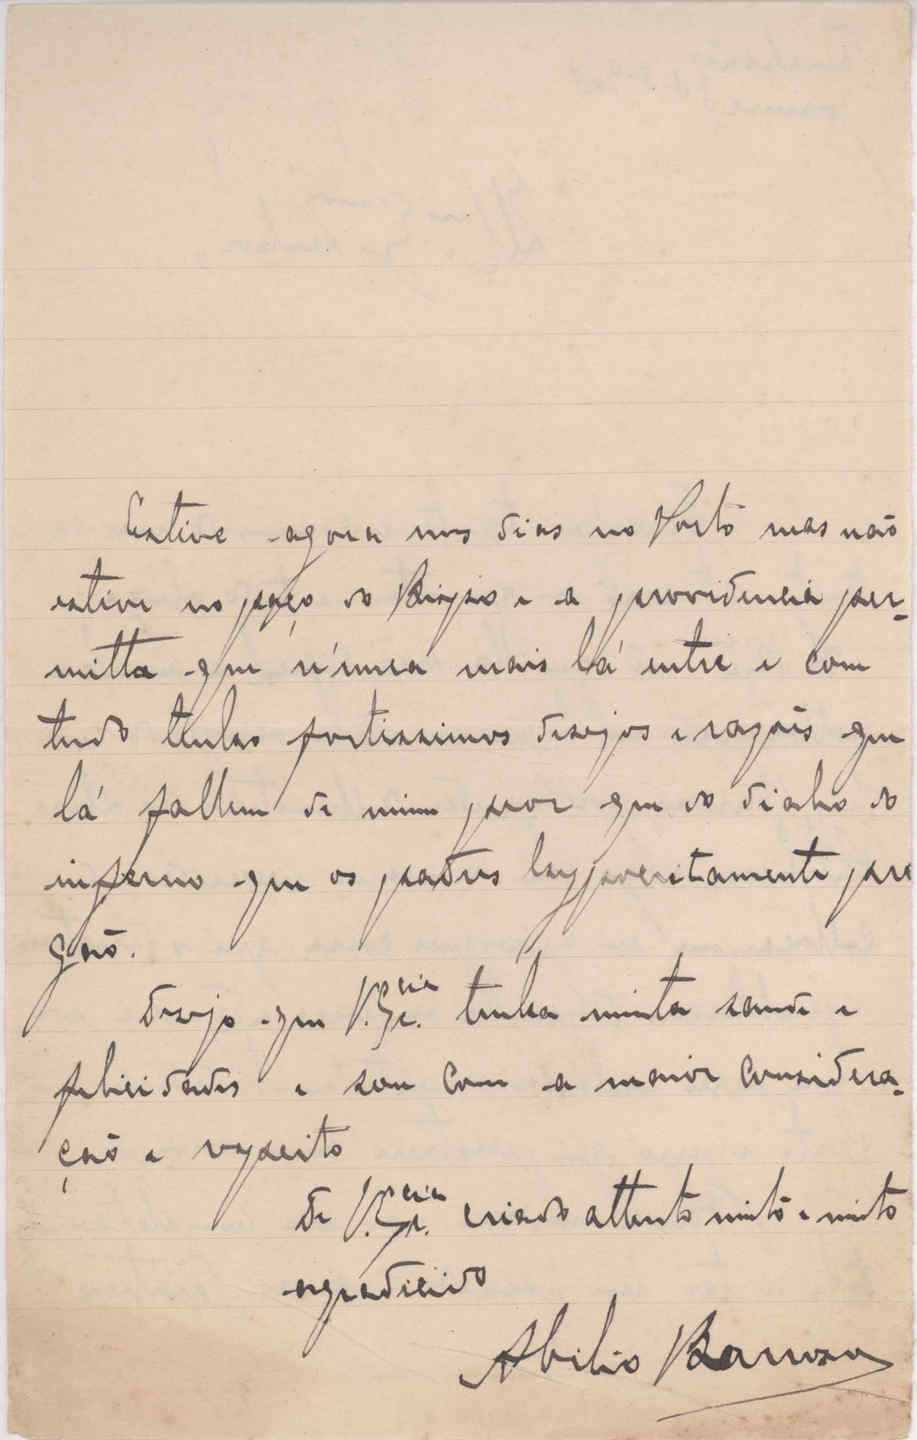 Estive agora uns dias no Porto mas não
estive no paço do Bispo e a providencia per-
mitta que n'unca mais lá entre e com
tudo tenho fortissimos desejos e razões que
lá fallem de mim peor que do diabo do
inferno que os padres hyppocritamente pre
gaõ.
Desejo que V. Ex.cia tenha muita saude e
felicidades e sou com a maior considera-
çaõ e respeito
De V. Ex.cia criado attento muito e muito
agradecido
Abilio Barroso